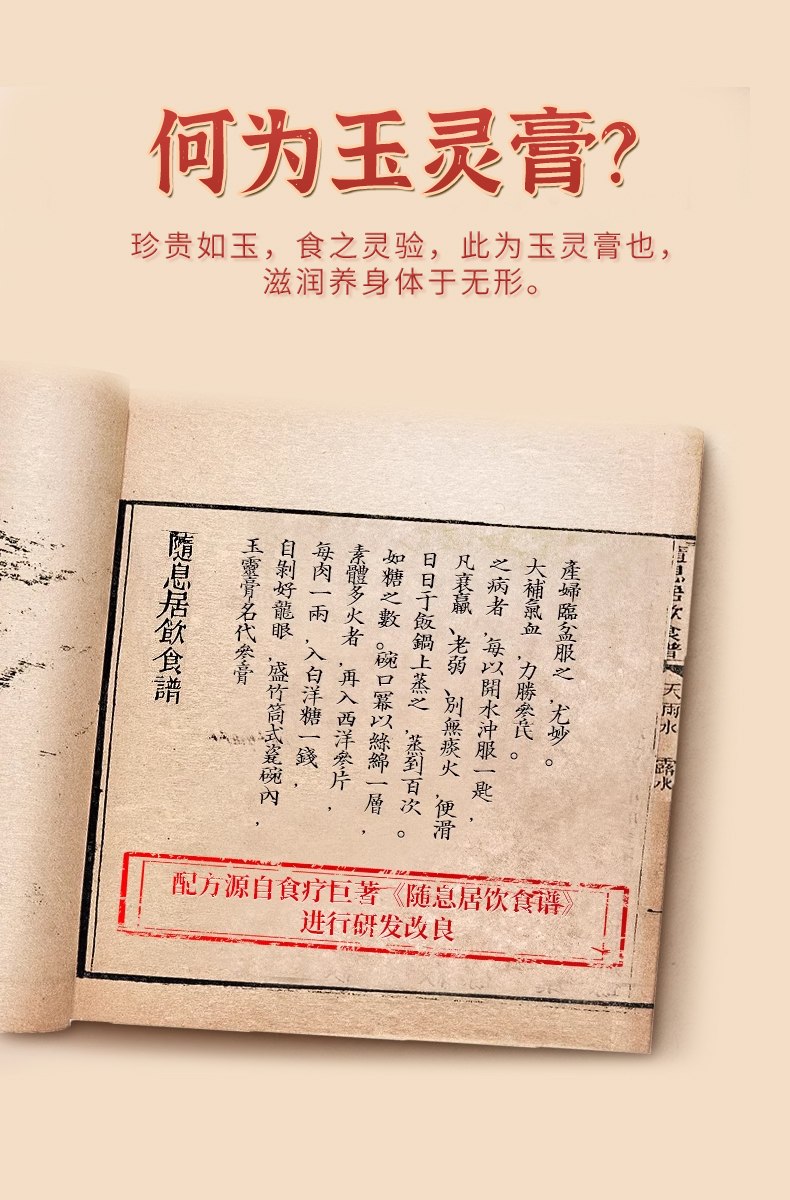 何为玉灵膏?
珍贵如玉，食之灵验，此为玉灵膏也，
滋润养身体于无形。
隨息居飲食譜
玉靈膏名代參膏
自剝好龍眼，盛竹筒式瓷碗內，
每肉一兩，入白洋糖一錢，
素體多火者，再入西洋參片，
如糖之數。碗口冪以絲綿一層，
日日于飯鍋上蒸之，蒸到百次。
凡衰羸、老弱、別無痰火，便滑
之病者，每以開水沖服一匙，
大補氣血，力勝參芪。
產婦臨盆服之，尤妙。
隨息居飲食譜
天雨水
露水
配方源自食疗巨著《随息居饮食谱》
进行研发改良